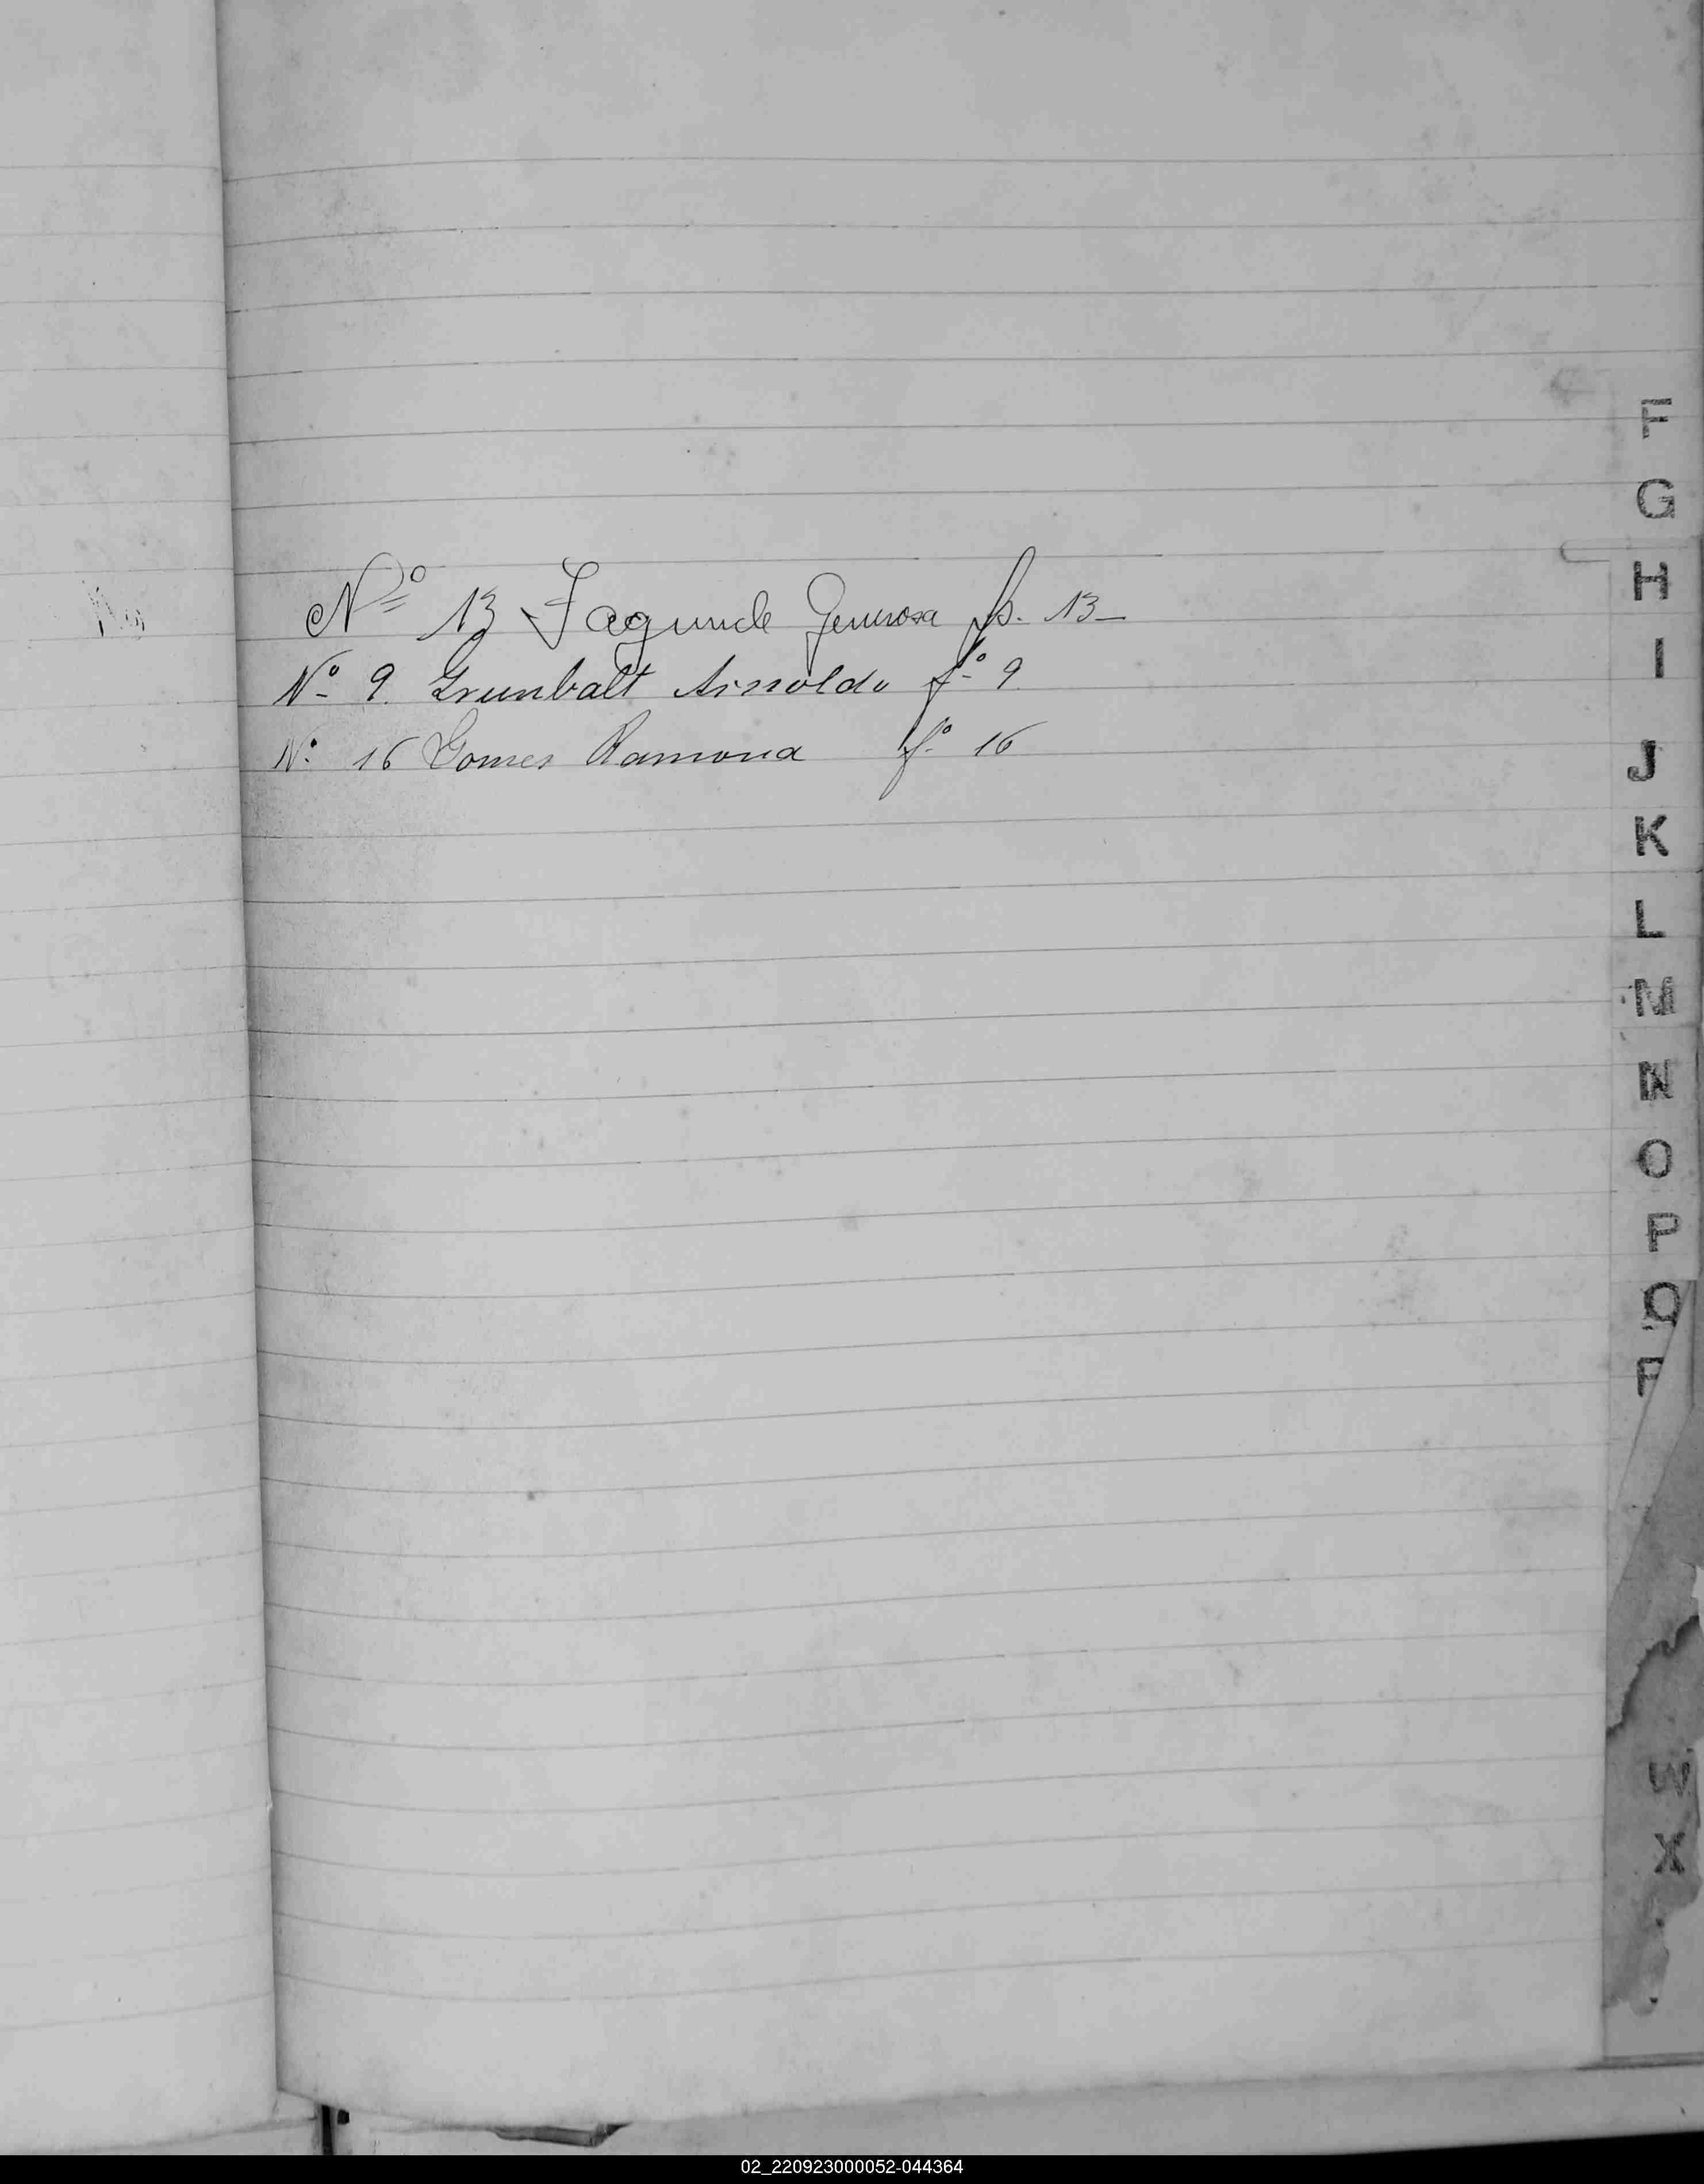 Nº 13 Fagunde Generosa fs. 13-
Nº 9. Grunbalt Arnoldo fº 9.
Nº 16 Gomes Ramona fº 16
F
G
H
I
J
K
L
M
N
O
P
Q
W
X
02_220923000052-044364